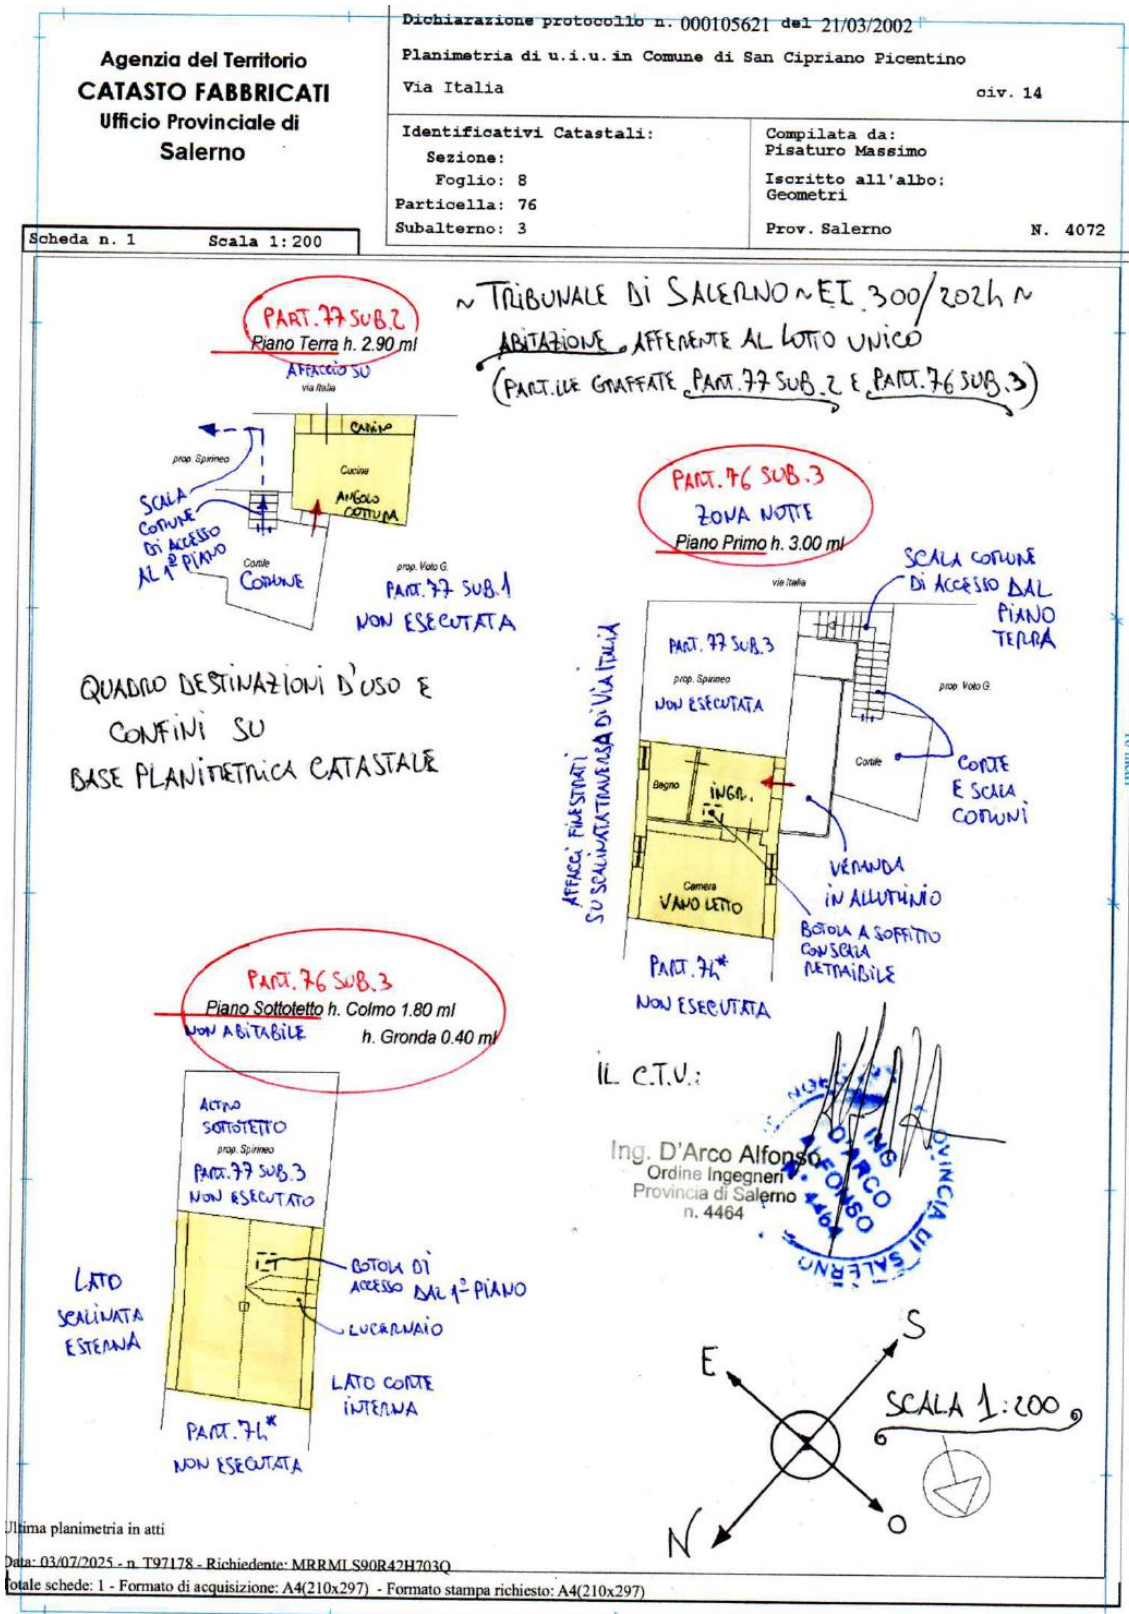 Dichiarazione protocollo n. 000105621 del 21/03/2002
Planimetria di u.i.u. in Comune di San Cipriano Picentino
Via Italia
civ. 14
Agenzia del Territorio
CATASTO FABBRICATI
Ufficio Provinciale di
Salerno
Identificativi Catastali:
Sezione:
Foglio: 8
Particella: 76
Subalterno: 3
Compilata da:
Pisaturo Massimo
Iscritto all'albo:
Geometri
Prov. Salerno
N. 4072
Scheda n. 1
Scala 1:200
~ TRIBUNALE DI SALERNO ~ EI. 300/2024 ~
ABITAZIONE AFFERENTE AL LOTTO UNICO
(PART.LLE GRAFFATE PART.77 SUB.2 E PART.76 SUB.3)
PART.77 SUB.2
Piano Terra h. 2.90 ml
AFFACCIO SU
via Italia
CAMINO
prop. Spirineo
Cucina
ANGOLO
COTTURA
SCALA
COMUNE
DI ACCESSO
AL 1° PIANO
Cortile
COMUNE
prop. Voto G.
PART.77 SUB.1
NON ESECUTATA
QUADRO DESTINAZIONI D'USO E
CONFINI SU
BASE PLANIMETRICA CATASTALE
PART.76 SUB.3
ZONA NOTTE
Piano Primo h. 3.00 ml
via Italia
SCALA COMUNE
DI ACCESSO DAL
PIANO
TERRA
PART.77 SUB.3
prop. Spirineo
NON ESECUTATA
prop. Voto G.
AFFACCI FINESTRATI
SU SCALINATA TRAVERSA DI VIA ITALIA
Bagno
INGR.
Cortile
CORTE
E SCALA
COMUNI
Camera
VANO LETTO
VERANDA
IN ALLUMINIO
BOTOLA A SOFFITTO
CON SCALA
RETRAIBILE
PART.74*
NON ESECUTATA
PART.76 SUB.3
Piano Sottotetto h. Colmo 1.80 ml
NON ABITABILE
h. Gronda 0.40 ml
ALTRO
SOTTOTETTO
prop. Spirineo
PART.77 SUB.3
NON ESECUTATO
LATO
SCALINATA
ESTERNA
BOTOLA DI
ACCESSO DAL 1° PIANO
LUCERNAIO
LATO CORTE
INTERNA
PART.74*
NON ESECUTATA
IL C.T.U.:
Ing. D'Arco Alfonso
Ordine Ingegneri
Provincia di Salerno
n. 4464
ING
D'ARCO
ALFONSO
N° 4464
PROVINCIA DI SALERNO
S
E
O
N
SCALA 1:200
Ultima planimetria in atti
Data: 03/07/2025 - n. T97178 - Richiedente: MRRMLS90R42H703Q
Totale schede: 1 - Formato di acquisizione: A4(210x297) - Formato stampa richiesto: A4(210x297)